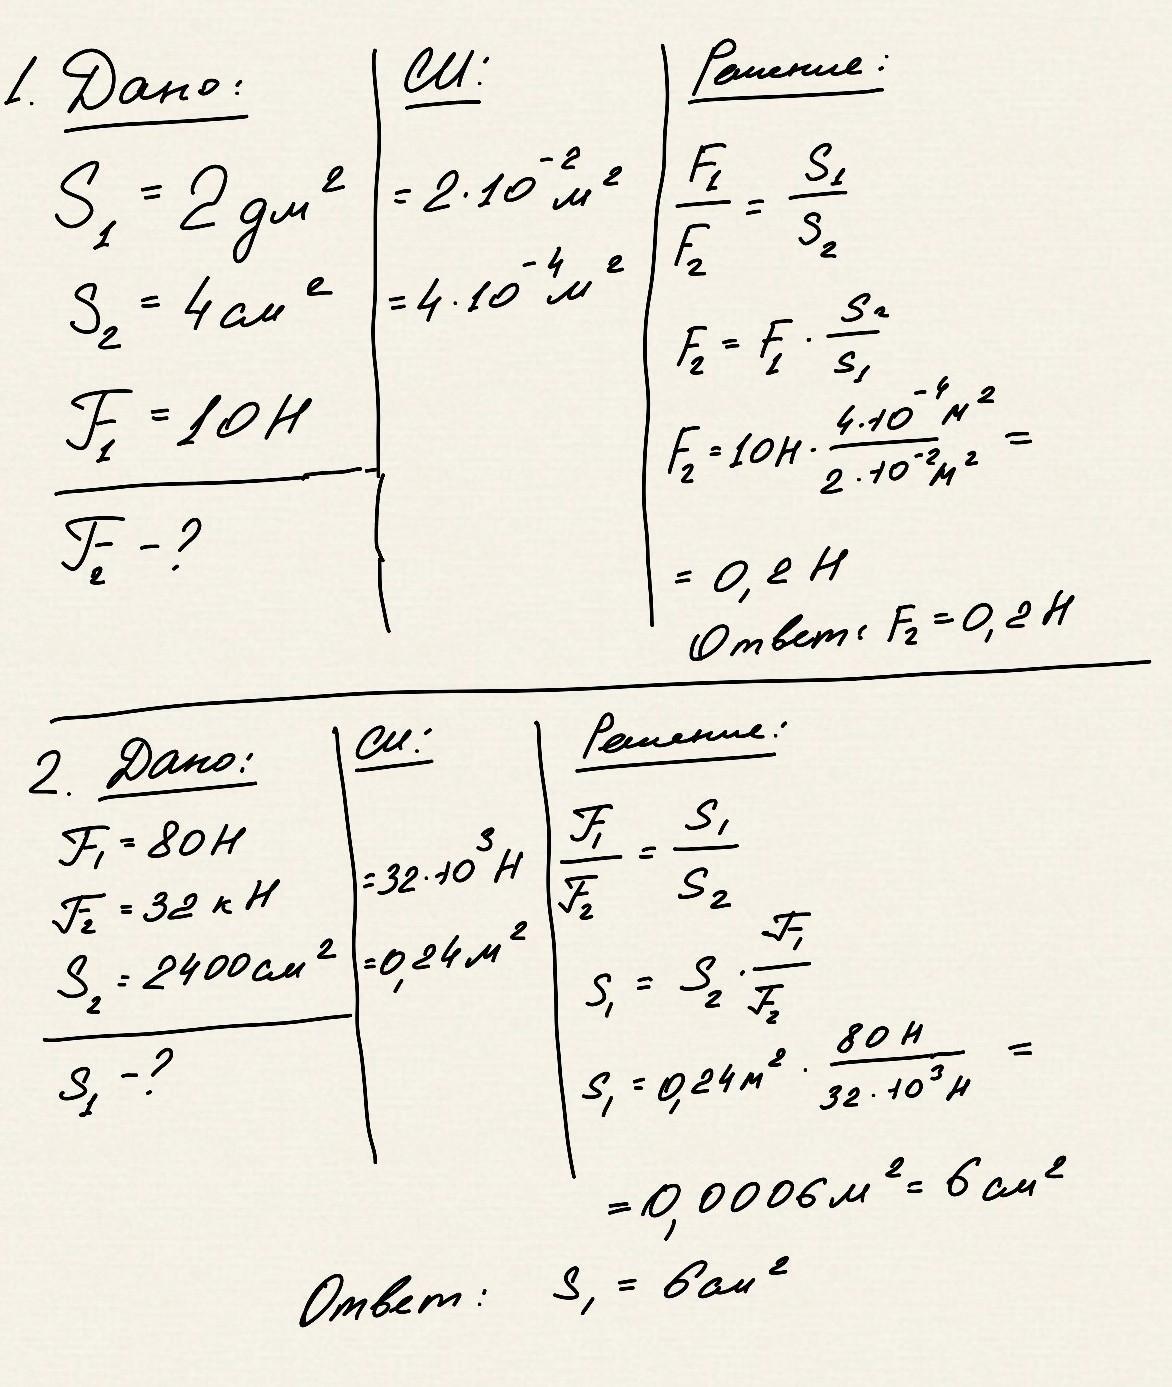 1. Дано:
S₁ = 2 дм²
S₂ = 4 см²
F₁ = 10 Н
F₂ - ?
СИ:
= 2·10⁻² м²
= 4·10⁻⁴ м²
Решение:
F₁/F₂ = S₁/S₂
F₂ = F₁ · S₂/S₁
F₂ = 10 Н · 4·10⁻⁴ м² / 2·10⁻² м² =
= 0,2 Н
Ответ: F₂ = 0,2 Н
2. Дано:
F₁ = 80 Н
F₂ = 32 кН
S₂ = 2400 см²
S₁ - ?
СИ:
= 32·10³ Н
= 0,24 м²
Решение:
F₁/F₂ = S₁/S₂
S₁ = S₂ · F₁/F₂
S₁ = 0,24 м² · 80 Н / 32·10³ Н =
= 0,0006 м² = 6 см²
Ответ: S₁ = 6 см²